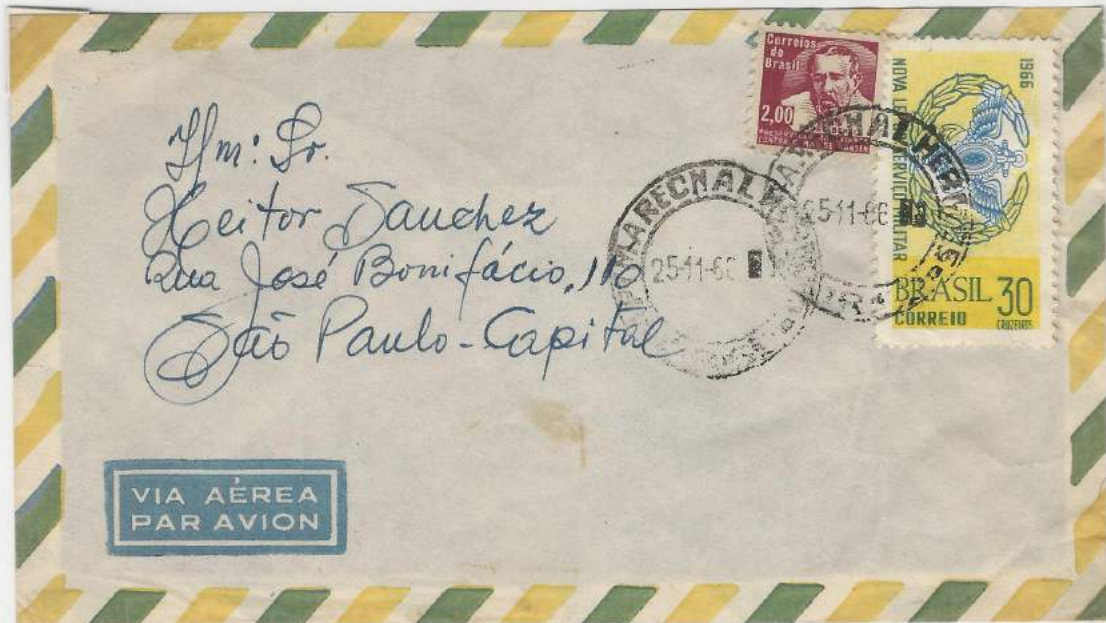 Correios
do
Brasil
2,00
1966
NOVA LEI DO SERVIÇO MILITAR
BRASIL 30
CORREIO CRUZEIROS
Ilm: Sr.
Heitor Sanchez
Rua José Bonifácio, 110
São Paulo-Capital
MARECHAL
25-11-66
MARECHAL
25-11-66
VIA AÉREA
PAR AVION